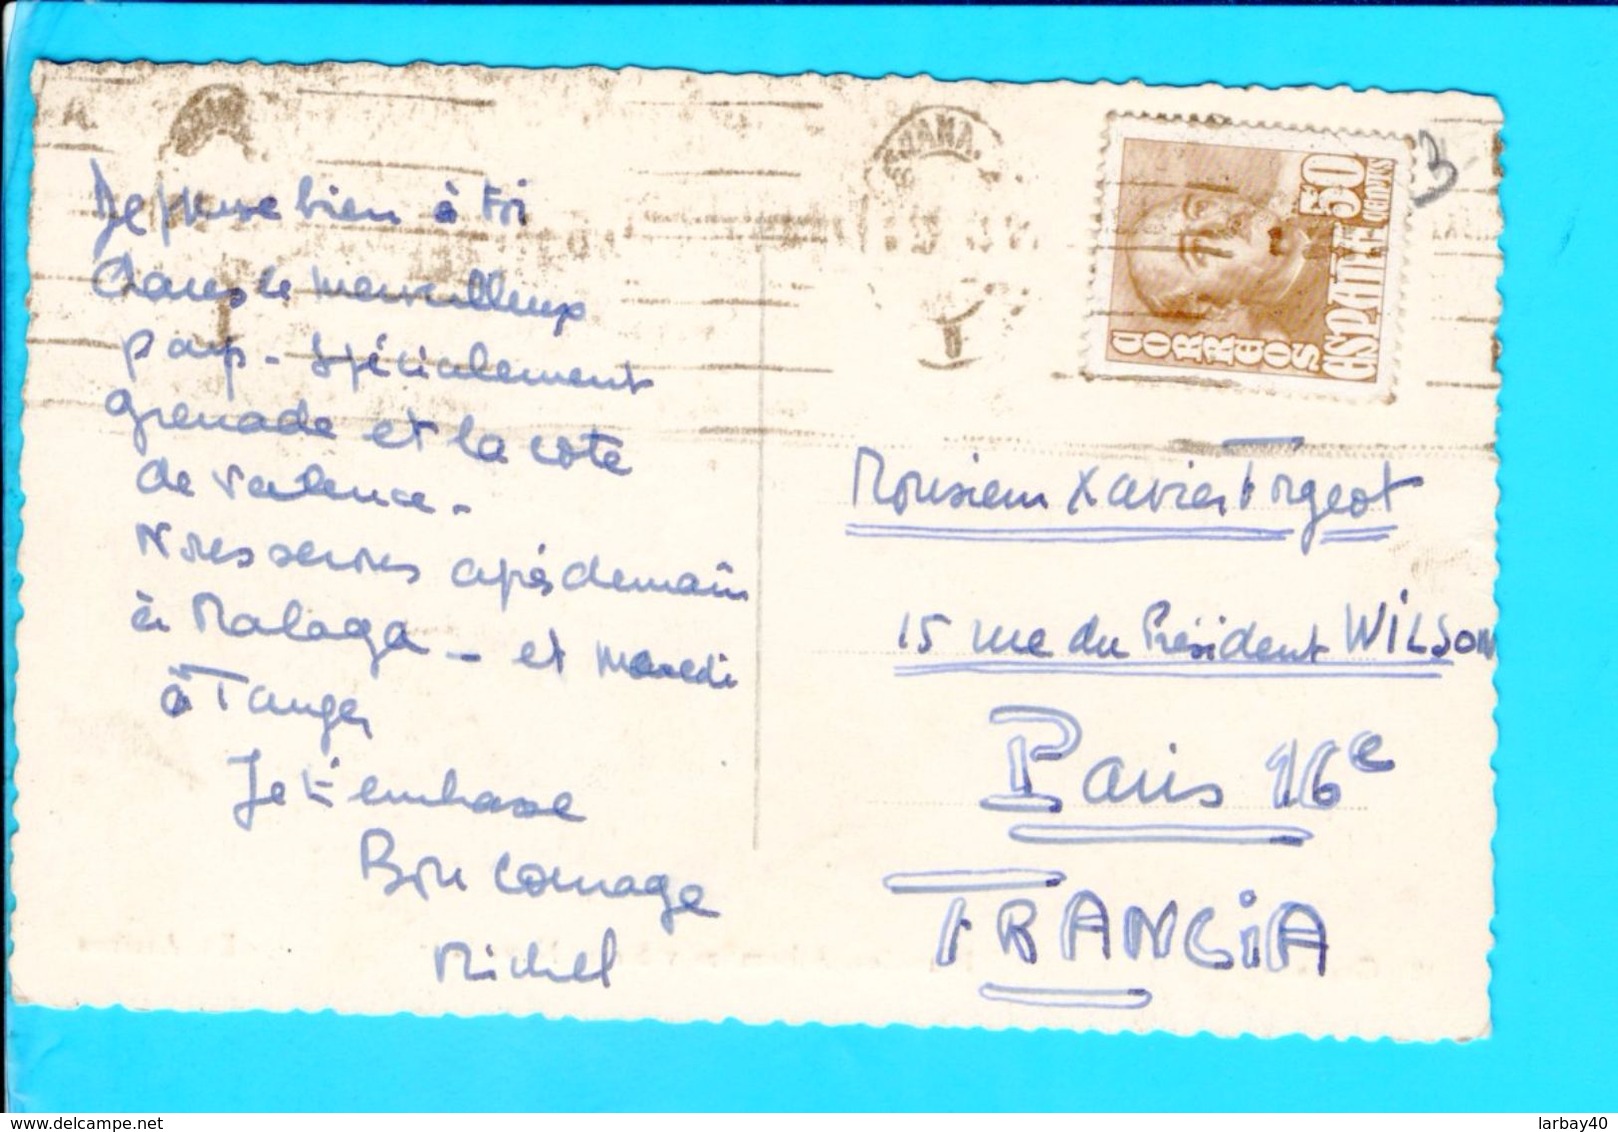 Je pense bien à toi
dans le merveilleux
pays - spécialement
Grenade et la côte
de Valence -
Nous serons après demain
à Malaga - et mardi
à Tanger
Je t'embrasse
Bon courage
Michel
CORREOS
ESPAÑA
50
CENTIMOS
3
Monsieur Xavier Forgeot
15 rue du Président WILSON
Paris 16e
FRANCIA
www.delcampe.net
larbay40